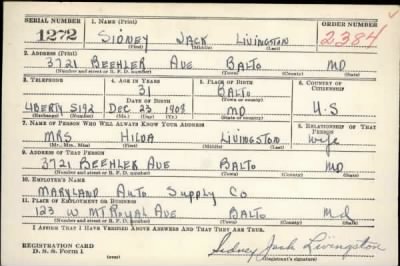 SERIAL NUMBER 1. NAME (Print) ORDER NUMBER
1272 SIDNEY JACK LIVINGSTON 2384
(First) (Middle) (Last)
2. ADDRESS (Print)
3721 BEEHLER AVE BALTO MD
(Number and street or R. F. D. number) (Town) (County) (State)
3. TELEPHONE 4. AGE IN YEARS 5. PLACE OF BIRTH 6. COUNTRY OF CITIZENSHIP
31 BALTO
DATE OF BIRTH (Town or county)
LIBERTY 5192 DEC 23 1908 MD U.S
(Exchange) (Number) (Mo.) (Day) (Yr.) (State or country)
7. NAME OF PERSON WHO WILL ALWAYS KNOW YOUR ADDRESS 8. RELATIONSHIP OF THAT PERSON
MRS HILDA LIVINGSTON Wife
(Mr., Mrs., Miss) (First) (Middle) (Last)
9. ADDRESS OF THAT PERSON
3721 BEEHLER AVE BALTO MD
(Number and street or R. F. D. number) (Town) (County) (State)
10. EMPLOYER'S NAME
MARYLAND AUTO SUPPLY CO
11. PLACE OF EMPLOYMENT OR BUSINESS
123 W MT ROYAL AVE BALTO Md
(Number and street or R. F. D. number) (Town) (County) (State)
I AFFIRM THAT I HAVE VERIFIED ABOVE ANSWERS AND THAT THEY ARE TRUE.
REGISTRATION CARD
D. S. S. Form 1 (over) Sidney Jack Livingston
(Registrant's signature)